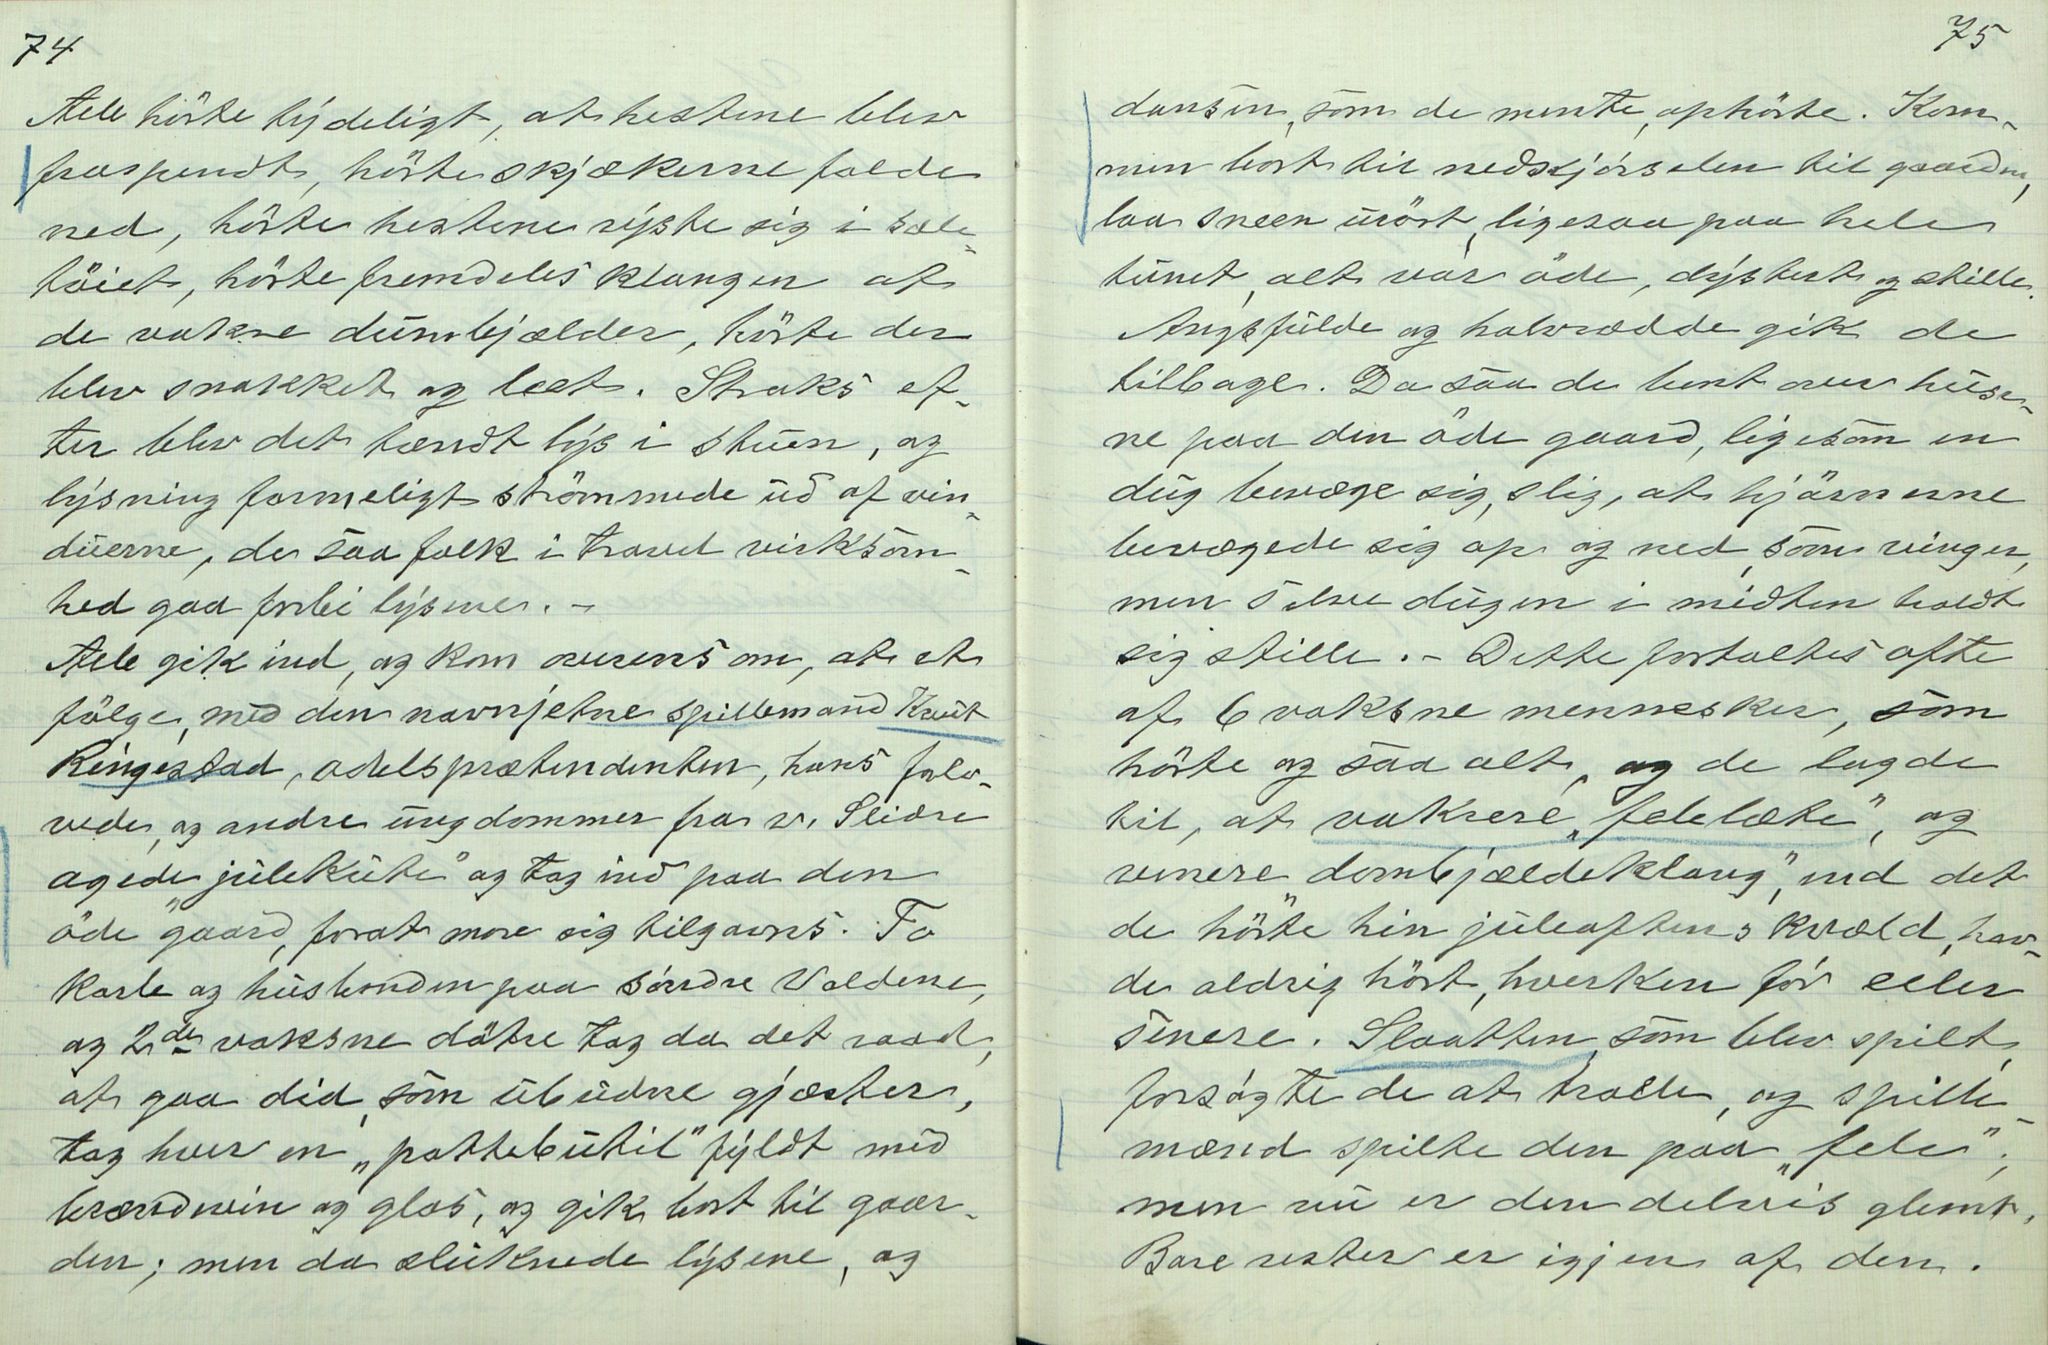 74
Alle hörte tydeligt, at hestene blev
fraspendt, hörte skjækerne falde
ned, hörte hestene ryste sig i sæle-
töiet, hörte fremdeles klangen af
de vakre dumbjælder, hörte der
blev snakket og leet. Straks ef-
ter blev det tændt lys i stuen, og
lysning formeligt strömmede ud af vin-
duerne, de saa folk i travel virksom-
hed gaa forbi lysene. -
Alle gik ind, og kom overens om, at et
fölge, med den navngjetne spillemand Knut
Ringestad, adelsprætendenten, hans forlo-
vede, og andre ungdommer fra v. Slidre
agede „julekute" og tog ind paa den
öde gaard, forat more sig tilgavns. To
karle og husbonden paa söndre Voldene,
og 2de vaksne dötre tog da det raad,
at gaa did, som ubudne gjæster,
tog hver en „pottebutil" fyldt med
brændevin og glas, og gik bort til gaar-
den; men da sluknede lysene, og
75
dansen, som de mente, ophörte. Kom-
men bort til nedkjörselen til gaarden,
laa sneen urört, ligesaa paa hele
tunet, alt var öde, dystert og stille.
Angsfulde og halvrædde gik de
tilbage. Da saa de bent over huse-
ne paa den öde gaard, ligesom en
dug bevæge sig, slig, at hjörnerne
bevægede sig op og ned, som vinger,
men selve dugen i midten holdt
sig stille. - Dette fortaltes ofte
af 6 vaksne mennesker, som
hörte og saa alt, og de lagde
til, at vakrere „felelæte", og
renere „dombjældeklang", end det
de hörte hin juleaftens kvæld, hav-
de aldrig hört, hverken för eller
senere. Slaatten, som blev spilt,
forsögte de at tralle, og spille-
mænd spilte den paa „fele";
men nu er den delvis glemt.
Bare rester er igjen af den.